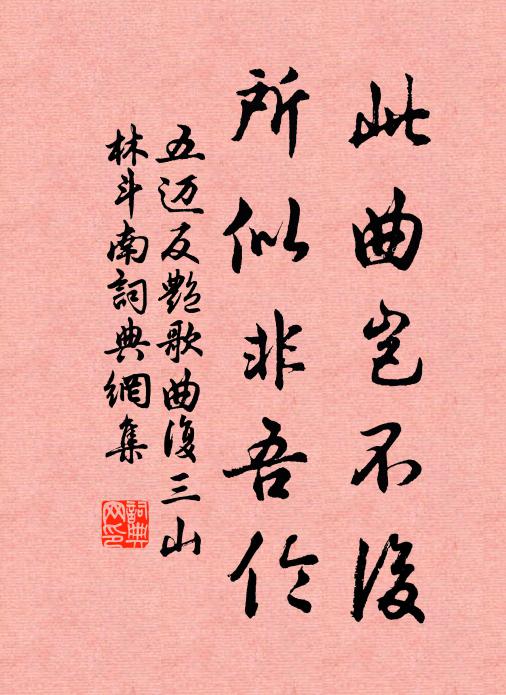 此曲岂不復
所似非吾伦
五迈反艷歌曲復三山
林斗南詞典網集
詞典网印